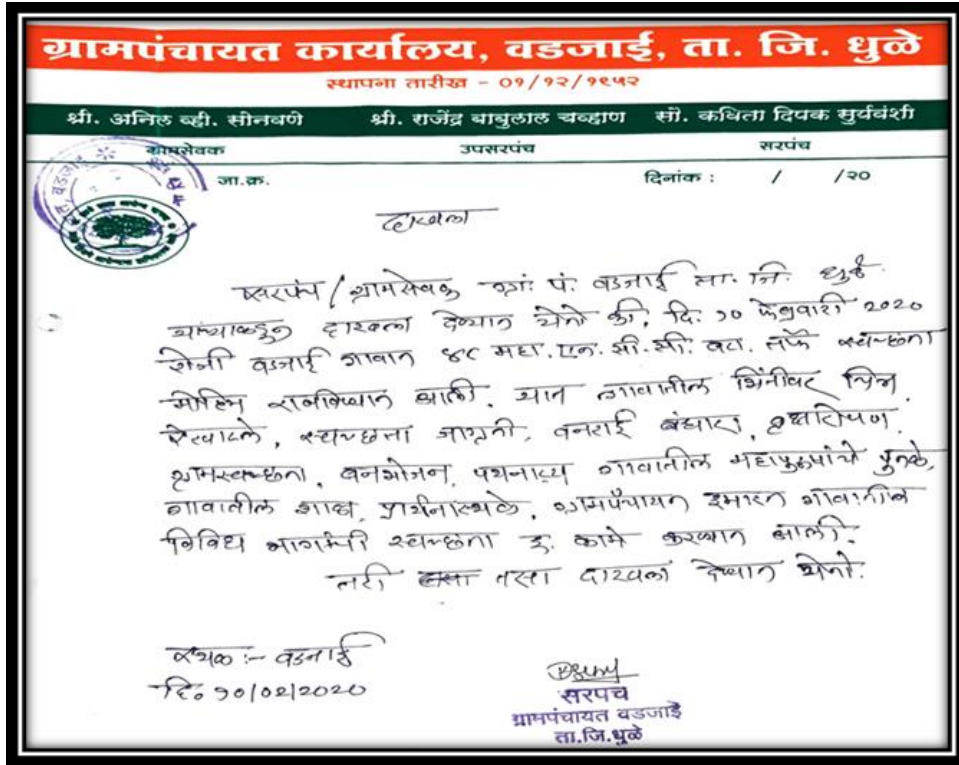 ग्रामपंचायत कार्यालय, वडजाई, ता. जि. धुळे
स्थापना तारीख - ०१/१२/१९५२
श्री. अनिल व्ही. सोनवणे श्री. राजेंद्र बाबुलाल चव्हाण सौ. कविता दिपक सुर्यवंशी
ग्रामसेवक उपसरपंच सरपंच
जा.क्र. दिनांक : / /२०
दाखला
सरपंच / ग्रामसेवक ग्रा. पं. वडजाई ता. जि. धुळे
यांच्याकडुन दाखला देण्यात येतो की, दि. १० फेब्रुवारी 2020
रोजी वडजाई गावात ४८ महा. एन. सी. सी. बटा. तर्फे स्वच्छता
मोहिम राबविण्यात आली. यात गावातील भिंतीवर चित्र
रेखाटले, स्वच्छता जागृती, वनराई बंधारा, वृक्षारोपण,
ग्रामस्वच्छता, वनभोजन, पथनाट्य गावातील महापुरुषांचे पुतळे,
गावातील शाळा, प्रार्थनास्थळे, ग्रामपंचायत इमारत गावातील
विविध भागांची स्वच्छता इ. कामे करण्यात आली.
तरी तसा दाखला देण्यात येतो.
स्थळ :- वडजाई
दि. १०/०२/2020
सरपंच
ग्रामपंचायत वडजाई
ता.जि.धुळे